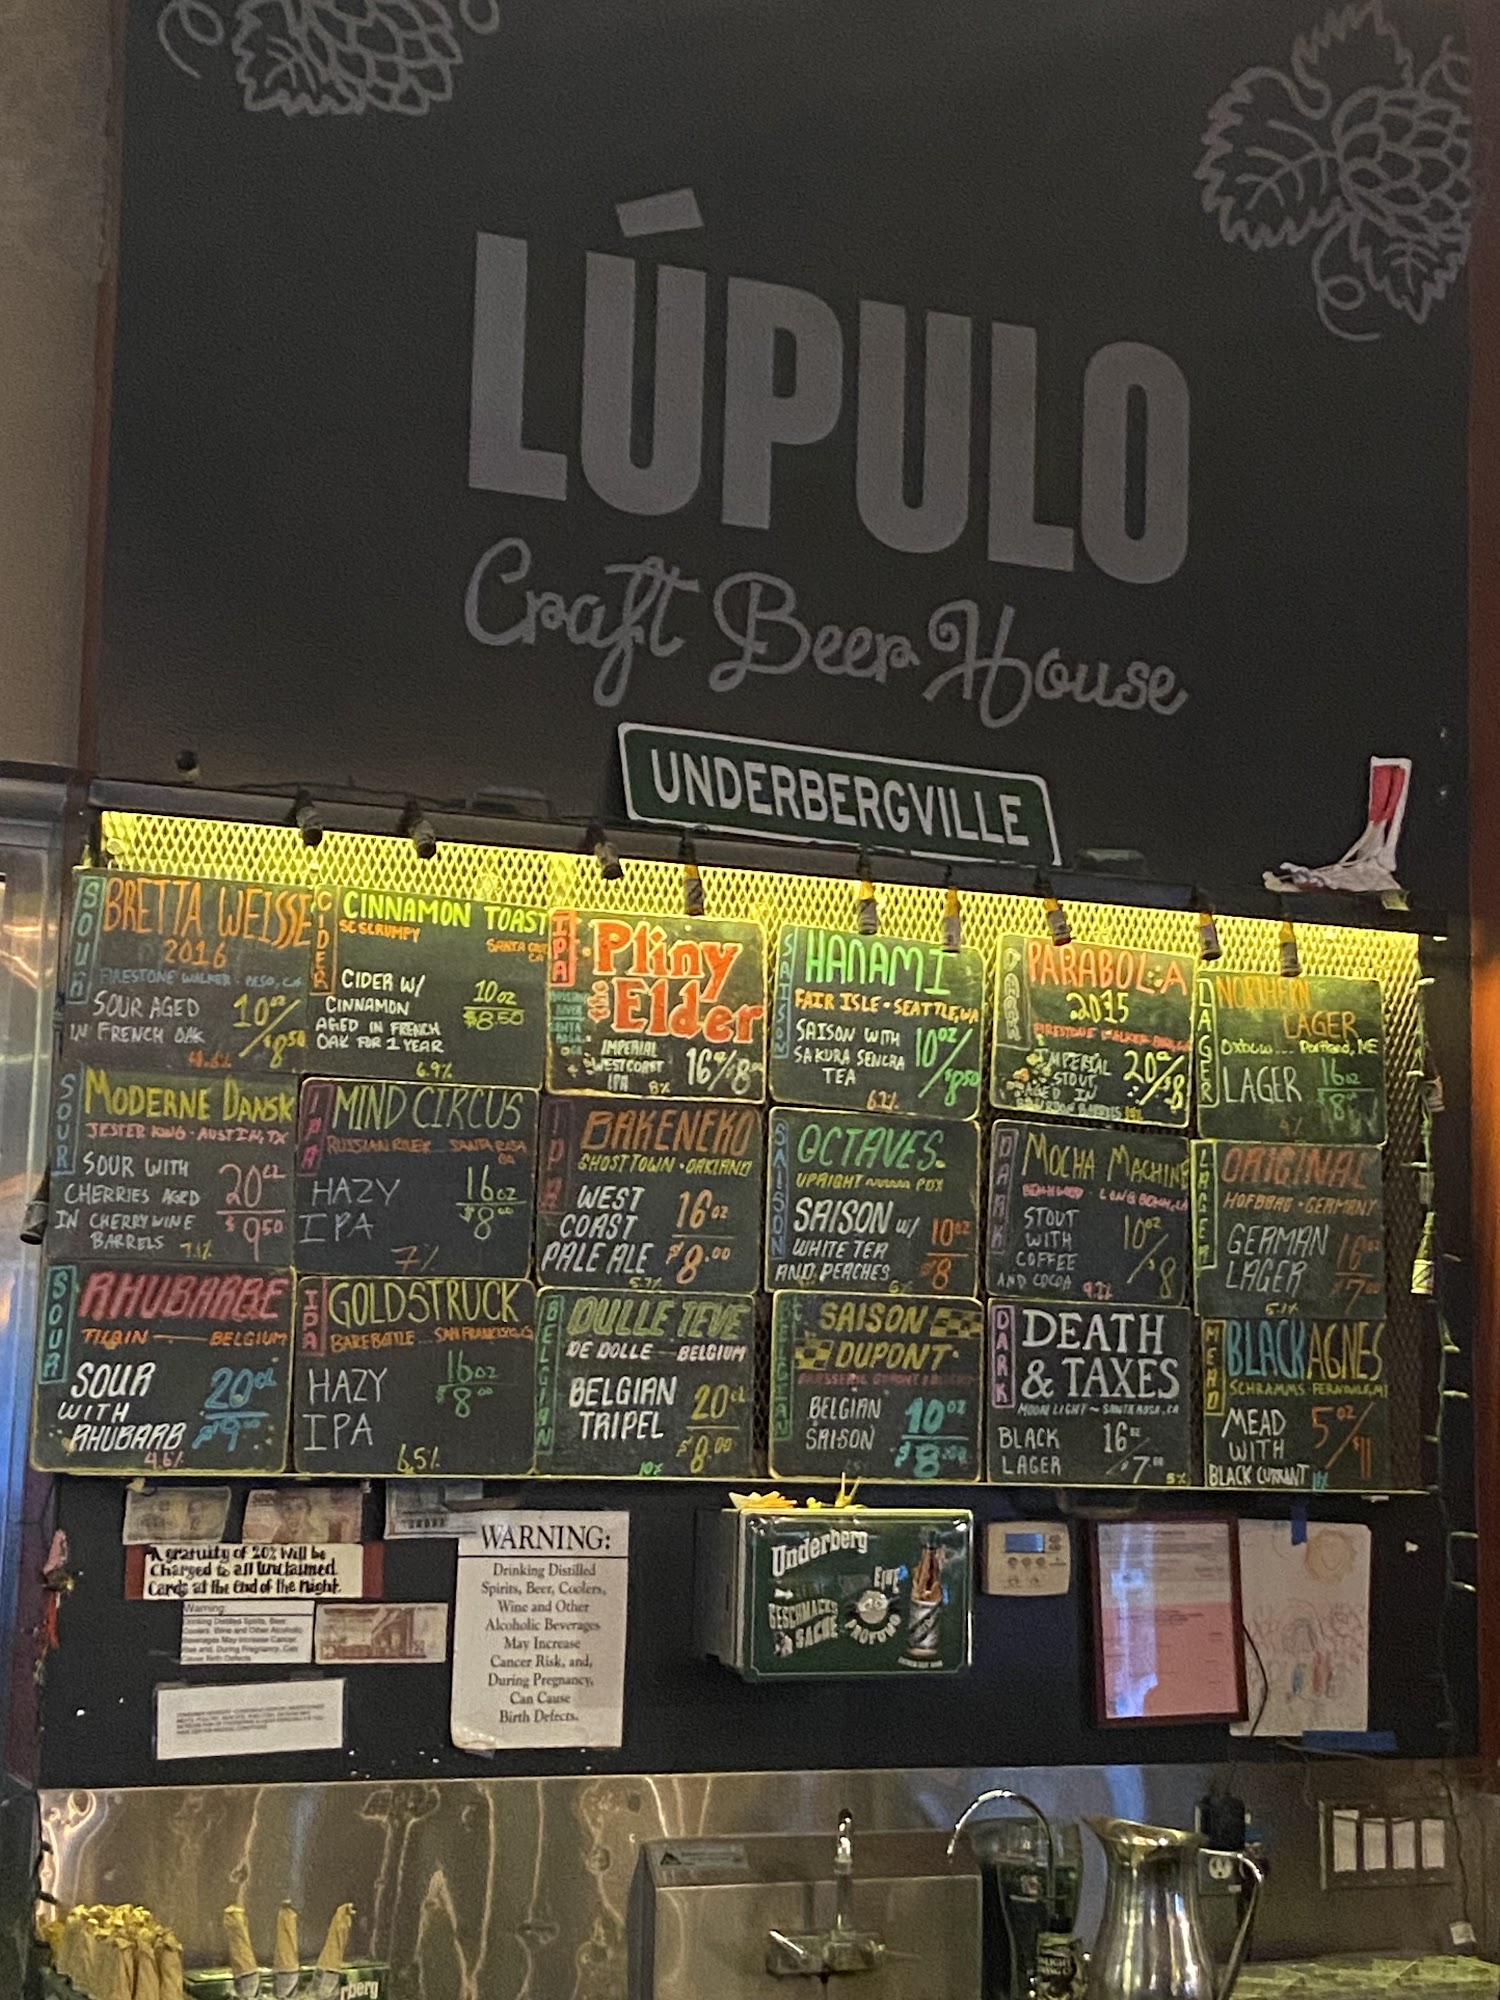 LÚPULO
Craft Beer House
UNDERBERGVILLE
SOUR
BRETTA WEISSE
2016
FIRESTONE WALKER
SOUR AGED
IN FRENCH OAK
10oz/$8.50
CIDER
CINNAMON TOAST
SC SCRUMPY
CIDER W/
CINNAMON
AGED IN FRENCH
OAK FOR 1 YEAR
10oz
$8.50
6.9%
IPA
Pliny
the
Elder
IMPERIAL
WEST COAST
IPA
8%
16oz/8
SAISON
HANAMI
FAIR ISLE • SEATTLE, WA
SAISON WITH
SAKURA SENCHA
TEA
10oz/$8.50
DARK
PARABOLA
2015
FIRESTONE WALKER
IMPERIAL
STOUT
AGED IN
BOURBON BARRELS
LAGER
NORTHERN
LAGER
Oxbow Portland, ME
LAGER
16oz
$8
SOUR
MODERNE DANSK
JESTER KING • AUSTIN, TX
SOUR WITH
CHERRIES AGED
IN CHERRY WINE
BARRELS
7.1%
20cl
$9.50
IPA
MIND CIRCUS
RUSSIAN RIVER SANTA ROSA
CA
HAZY
IPA
7%
16oz
$8.00
IPA
BAKENEKO
GHOST TOWN • OAKLAND
WEST
COAST
PALE ALE
5.7%
16oz
$8.00
SAISON
OCTAVES
UPRIGHT PDX
SAISON w/
WHITE TEA
AND PEACHES
10oz
$8
DARK
MOCHA MACHINE
BEACHWOOD LONG BEACH, CA
STOUT
WITH
COFFEE
AND COCOA
10oz/8
LAGER
ORIGINAL
HOFBRAU • GERMANY
GERMAN
LAGER
5.1%
16oz
$7.00
SOUR
RHUBARBE
TILQIN BELGIUM
SOUR
WITH
RHUBARB
4.6%
20cl
$9.00
IPA
GOLDSTRUCK
BAREBOTTLE SAN FRANCISCO
HAZY
IPA
6.5%
16oz
$8.00
BELGIAN
DULLE TEVE
DE DOLLE BELGIUM
BELGIAN
TRIPEL
10%
20cl
$8.00
BELGIAN
SAISON
DUPONT
BELGIAN
SAISON
10oz
$8.00
DARK
DEATH
& TAXES
MOONLIGHT ~ SANTA ROSA, CA
BLACK
LAGER
16oz/7.00
5%
MEAD
BLACK AGNES
SCHRAMMS FERNDALE, MI
MEAD
WITH
BLACK CURRANT
5oz/$11
A gratuity of 20% Will be
Charged to all Unclaimed
Cards at the End of the Night.
Warning:
Drinking Distilled Spirits, Beer
Coolers, Wine and Other Alcoholic
Beverages May Increase Cancer
Risk and, During Pregnancy, Can
Cause Birth Defects
WARNING:
Drinking Distilled
Spirits, Beer, Coolers,
Wine and Other
Alcoholic Beverages
May Increase
Cancer Risk, and,
During Pregnancy,
Can Cause
Birth Defects.
Underberg
GESCHMACKS
SACHE
rberg